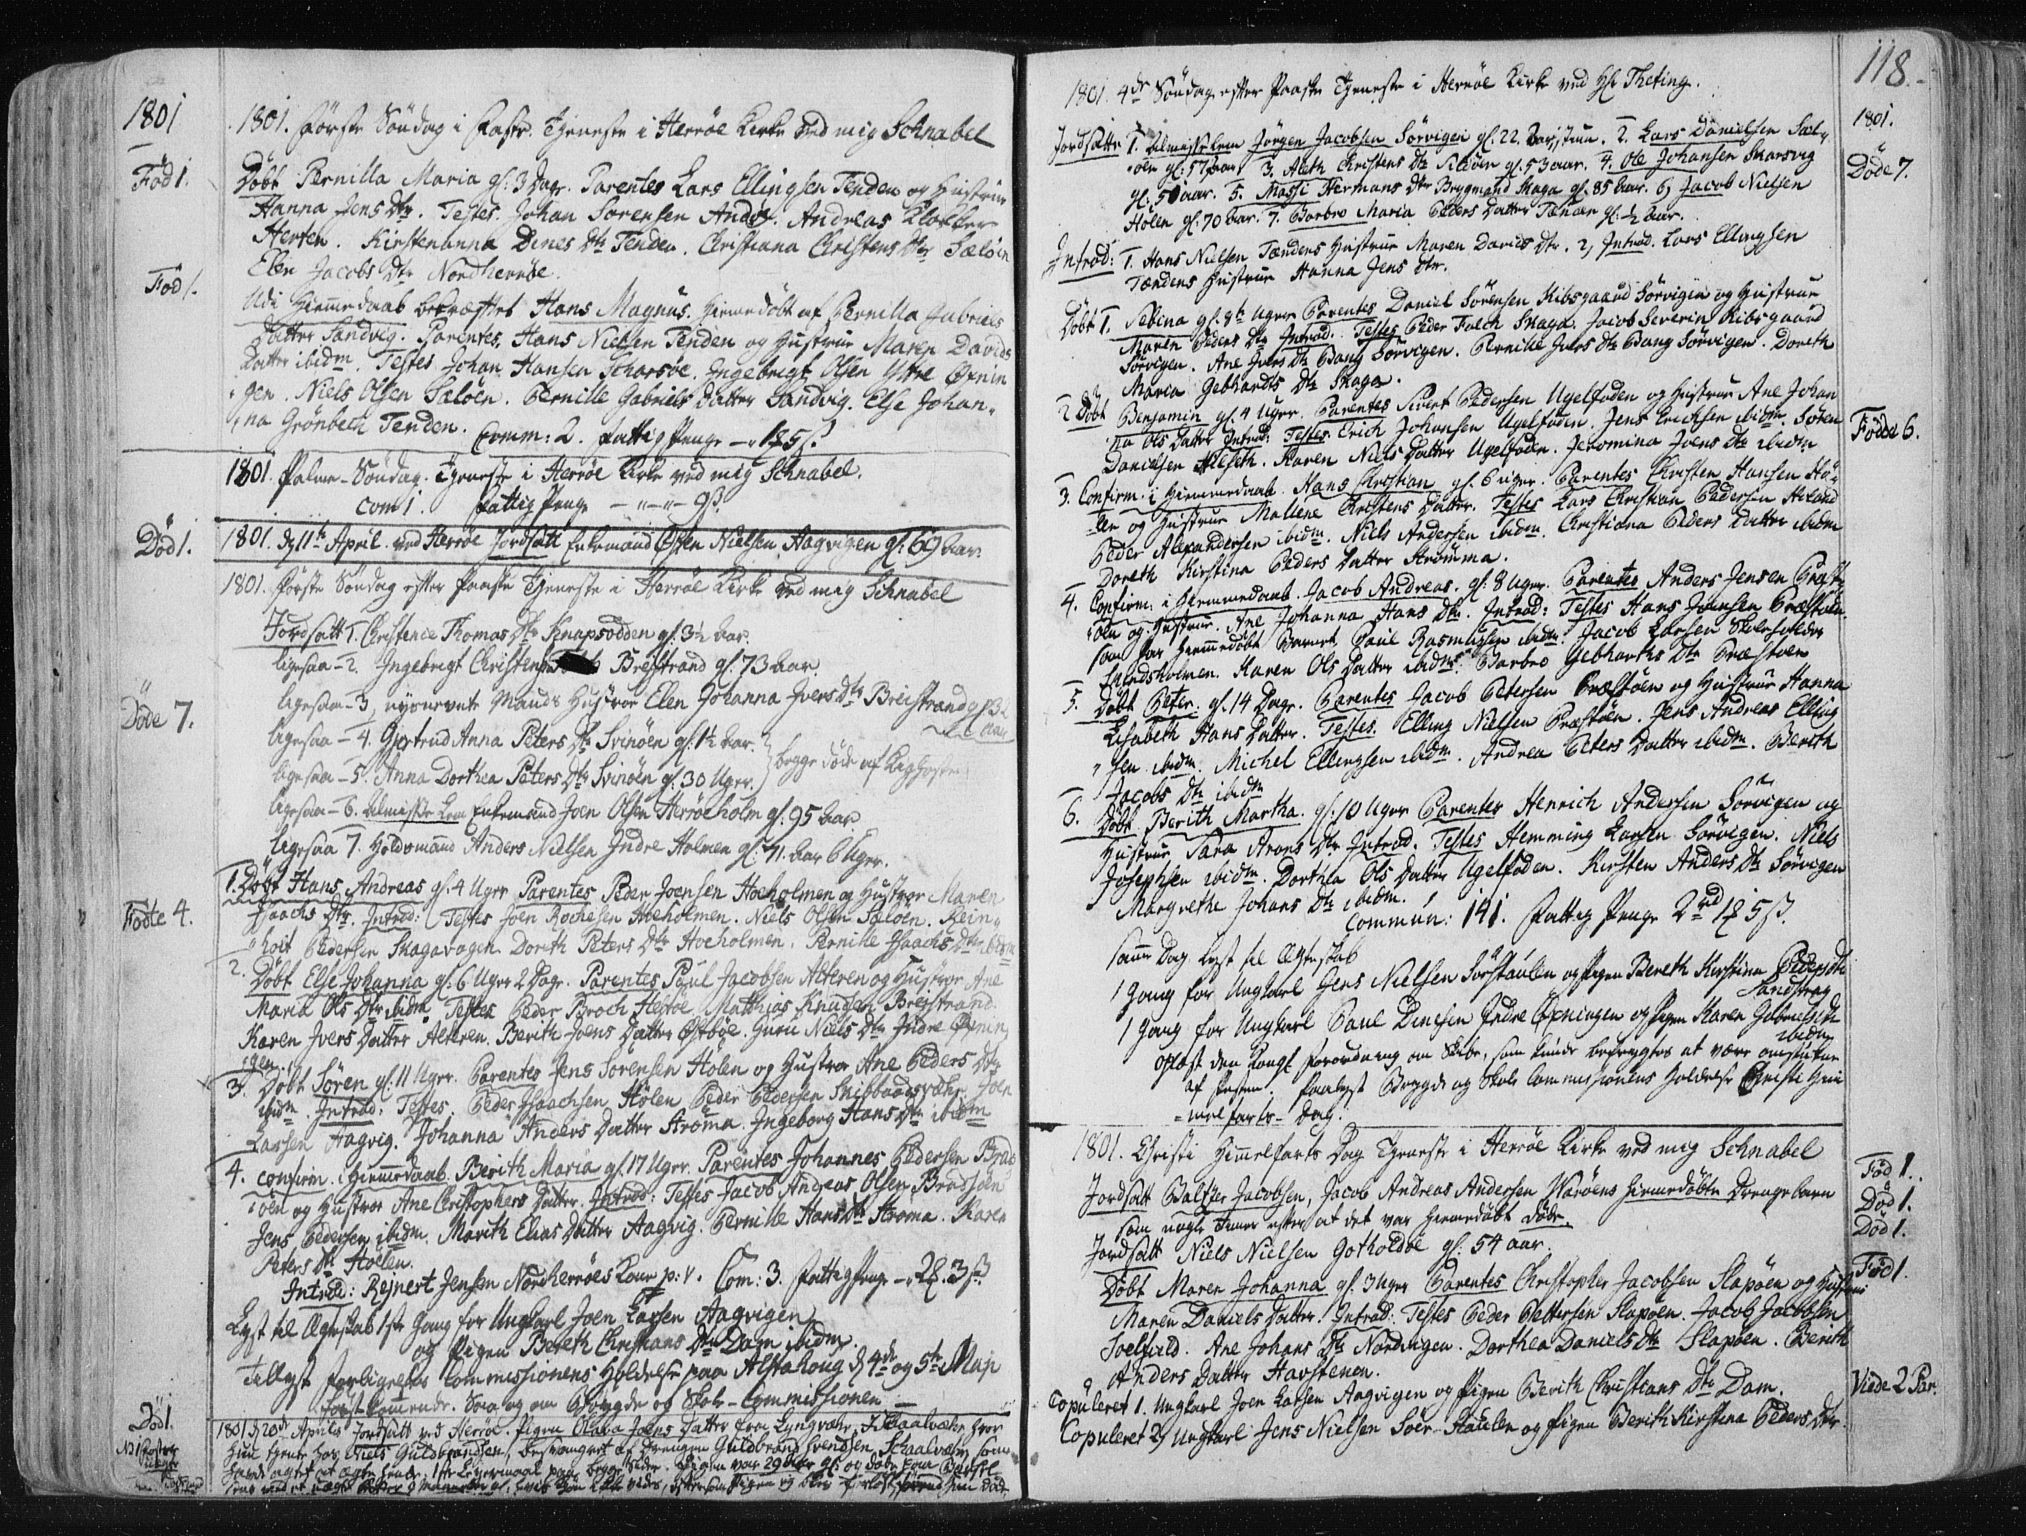 1801
1801. Første Søndag i Faste. Tjeneste i Herrøe Kirke ved mig Schnabel
Fød 1.
Døbt Pernilla Maria gl. 3 Dage. Parentes Lars Ellingsen Tenden og Hustrue
Hanna Jens Dtr. Testes. Johan Sørensen Andøs. Andreas Klokker
Herten. Kirstenanna Dines Dtr Tenden. Christiana Christens Dtr Sæløen
Elen Jacobs Dtr Nordherrøe.
Fød 1.
Udi Hiemmedaab bekræftet Hans Magnus. Hiemedøbt af Pernilla Gabriels
Datter Sandvig. Parentes. Hans Nielsen Tenden og Hustrue Maren Davids
Datter ibidm. Testes Johan Hansen Scharsøe. Ingebrigt Olsen Yttre Øxnin
gen. Niels Olsen Sæløen. Pernille Gabriels Datter Sandvig. Else Johan-
na Grönbech Tenden.
Comm: 2. Fattig Penge
1801. Palme-Søndag. Tjeneste i Herrøe Kirke ved mig Schnabel.
Com 1. Fattig Penge — " — " — 9ß.
Død 1.
1801. d 11te April ved Herrøe Jordsatt Enkemand Østen Nielsen Aagvigen gl. 69 Aar.
1801. Første Søndag efter Paaske Tjeneste i Herrøe Kirke ved mig Schnabel
Døde 7.
Jordsatt 1. Christence Thomas Dtr Knapsodden gl. 3½ Aar.
ligesaa - 2. Ingebrigt Christen Breistrand gl. 73 Aar.
ligesaa - 3, Mands Hustroe Elen Johanna Ivers Dtr Breistrand gl 32
Aar
ligesaa - 4. Gjertrud Anna Peters Dtr Svinøen gl. 1½ Aar.
ligesaa - 5. Anna Dorthea Peters Dtr Svinøen gl. 30 Uger. begge døde af Kighoste.
ligesaa - 6. Almisse Lem Enkemand Joen Olsen Herrøeholm gl. 95 Aar.
ligesaa 7. Anders Nielsen Indre Holmen gl. 71. Aar 6 Uger.
Fødte 4.
1. Døbt Hans Andreas gl. 4 Uger Parentes Peder Joensen Hoeholmen og Hustroe Maren
Isaachs Dtr. Introd: Testes Joen Rochesen Hoeholmen. Niels Olsen Sæløen. Rein-
hoit Pedersen Skagavogen. Dorith Peters Dtr Hoeholmen. Pernille Isaachs Dtr ibidm
2. Døbt Else Johanna gl. 6 Uger 2 Dage. Parentes Paul Jacobsen Alteren og Hustroe Ane
Maria Ols Dtr ibidm. Testes Peder Broch Hestøe. Matthias Knudsen Breistrand.
Karen Ivers Datter Alteren. Berith Joens Datter Østbøe. Guru Niels Dtr Indre Øxnin
gen.
3. Døbt Søren gl. 11 Uger. Parentes Jens Sorensen Holen og Hustroe Ane Peders Dtr
ibidm. Introd: Testes. Peder Isaachsen Hølen Peder Pedersen Joen
Larsen Aagvig. Johanna Anders Datter Strøma. Ingeborg Hans Dtr ibidm
4. Confirm. i Hiemedaab. Berith Maria gl. 17 Uger. Parentes Johannes Pedersen Bras
øen og Hustroe Ane Christophers Datter. Introd: Testes Jacob Andreas Olsen Brasøen
Jens Pedersen ibidm. Marith Elias Datter Aagvig. Pernille Hans Dtr Strøma. Karen
Peters Dtr Hoelen.
Introd: Rejnert Jensen Nordherrøes Kone p: v. Com: 3. Fattig Penge
Lyst til Ægteskab 1ste Gang for Ungkarl Joen Larsen Aagvigen
og Pigen Bereth Christians Dtr Dam ibidm.
Tillyst Forligelses Commissionens Holdelse paa Alstahoug d 4de og 5te Maji
førstkomende. Saa og om Bøygde og Skole-Commissionen —
Død 1.
1801 d 20de Aprilis Jordsatt ved Herrøe. Pigen Olava Joens Datter fra hvor
Hun tjente hos Niels Guldbrandsen, besvangret af Drengen Guldbrand Svendsen
118.
1801. 4de Søndag efter Paaske Tjeneste i Herrøe Kirke ved Hr Theting.
1801.
Døde 7.
Jordsatte 1. Almisselem Jørgen Jacobsen Sørvigen gl. 22. 2. Lars Danielsen Sæl-
øen gl: 57 Aar 3. Aleth Christens Dtr gl. 53 aar. 4. Ole Johansen Skarsvig
gl. 50 aar. 5. Massi Hermans Dtr Brygmand Skaga gl. 85 Aar. 6, Jacob Nielsen
Holen gl. 70 Aar. 7. Barbro Maria Peders Datter gl: ½ Aar.
Introd: 1. Hans Nielsen Tændens Hustrue Maren Davids Dtr. 2, Introd. Lars Ellingsen
Tændens Hustrue Hanna Jens Dtr.
Døbt 1. Selina gl. 8te Uger Parentes Daniel Sörensen Kibsgaard Sørvigen og Hustrue
Maren Peders Dtr Introd. Testes Peder Falch Skaga. Jacob Severin Kibsgaard
Sørvigen. Ane Ivers Dtr Bang Sørvigen. Pernille Ivers Dtr Bang Sørvigen. Doreth
Maria Gebhardts Dtr Skaga.
Fødde 6.
2 Døbt Benjamin gl. 4 Uger. Parentes Sivert Pedersen Ugelfoden og Hustrue Ane Johan
na Ols Datter Introd: Testes. Erich Johansen Ugelfoden. Jens Erichsen ibidm. Sören
Danielsen Alseth. Karen Niels Datter Ugelfoden. Jeromina Joens Dtr ibidm
3. Confirm. i Hiemmedaab. Hans Christian gl. 6 uger. Parentes Christen Hansen
og Hustrue Mallene Christens Datter. Testes Lars Christian Pedersen
Peder Alexandersen ibidm. Niels Andersen ibidm. Christiana Peders Datter ibidm
Doreth Kirstina Peders Datter Strømma.
4. Confirm: i Hiemmedaab. Jacob Andreas. gl: 8 Uger. Parentes Anders Jensen Præst-
øen og Hustrue. Ane Johanna Hans Dtr. Introd: Testes Hans Joensen Præstøen
som har hiemmedøbt Barnet. Paul Rasmussen ibidm. Jacob Larsen Skoleholder
Sandsholmen. Karen Ols Datter ibidm. Barbro Gebharths Dtr Præstøen
5. Døbt Peter. gl. 14 Dage. Parentes Jacob Petersen Præstøen og Hustrue Hanna
Lisabeth Hans Datter. Testes. Elling Nielsen Præstøen. Jens Andreas Elling
sen ibidm. Michel Ellingsen ibidm. Andrea Peters Datter ibidm. Bereth
Jacobs Dtr ibidm
6. Døbt Berith Martha. gl. 10 Uger Parentes Henrich Andersen Sørvigen og
Hustrue Sara Arons Dtr Introd. Testes Hemming Larsen Sørvigen. Niels
Josephsen ibidm. Dorthea Ols Datter Ugelfoden. Kirsten Anders Dtr Sørvigen
Margrethe Johans Dtr ibidm.
Commun: 141. Fattig Penge 2rd 1 5ß.
Samme Dag lyst til Ægteskab
1 Gang for Ungkarl Jens Nielsen Sørstaulen og Pigen Bereth Kirstina Pedersdtr
Sandstrag
1 Gang for Ungkarl Paul Dinesen Indre Øxningen og Pigen Karen Gabriels Dtr
ibidm
oplæst den Kongl. Forordning om Skibe, som kunde befrygtes at være omsittne
af Pesten. Paalyst Bøygde og Skole Commissionens Holdelse Christi Him
melfarts-Dag.
1801. Christi Himmelfarts Dag Tjeneste i Herrøe Kirke ved mig Schnabel
Fød 1.
Død 1.
Jordsatt Baltzer Jacobsen, Jacob Andreas Andersen Warøens hiemedøbte Drengebarn
som nogle Timer efter at det var hiemedøbt døde.
Død 1.
Jordsatt Niels Nielsen Gotholdøe gl: 54 aar.
Fød 1.
Døbt Maren Johanna gl. 3 Uger Parentes Christopher Jacobsen Slapøen og Hustrue
Maren Daniels Datter. Introd: Testes Peder Pettersen Slapøen. Jacob Jacobsen
Soelfield. Ane Johans Dtr Nordvigen. Dorthea Daniels Dtr Slapøen. Berith
Anders Datter Havstenen.
Viede 2 Par.
Copuleret 1. Ungkarl Joen Larsen Aagvigen og Pigen Berith Christians Dtr Dam.
Copuleret 2, Ungkarl Jens Nielsen Søer-Staulen og Pigen Berith Kirstina Peders Dtr